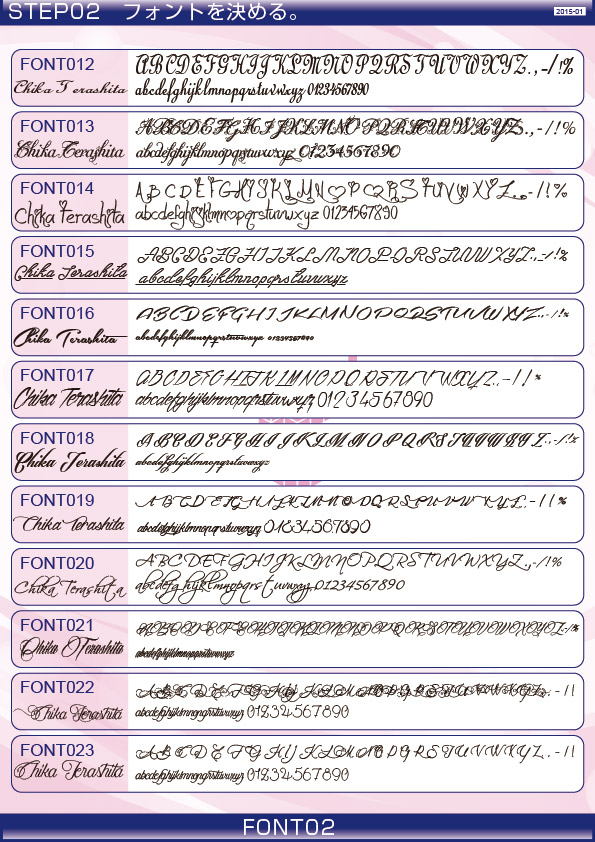 STEP02 フォントを決める。
2015-01
FONT012
ABCDEFGHIJKLMNOPQRSTUVWXYZ.,-/!%
Chika Terashita
abcdefghijklmnopqrstuvwxyz 0123456789
FONT013
ABCDEFGHIJKLMNOPQRSTUVWXYZ.,-/!%
Chika Terashita
abcdefghijklmnopqrstuvwxyz 0123456789
FONT014
ABCDEFGHIJKLMNOPQRSTUVWXYZ.,-/!%
Chika Terashita
abcdefghijklmnopqrstuvwxyz 0123456789
FONT015
ABCDEFGHIJKLMNOPQRSTUVWXYZ.,-/!%
Chika Terashita
abcdefghijklmnopqrstuvwxyz
FONT016
ABCDEFGHIJKLMNOPQRSTUVWXYZ.,-/!%
Chika Terashita
abcdefghijklmnopqrstuvwxyz 0123456789
FONT017
ABCDEFGHIJKLMNOPQRSTUVWXYZ.,-/!%
Chika Terashita
abcdefghijklmnopqrstuvwxyz 0123456789
FONT018
ABCDEFGHIJKLMNOPQRSTUVWXYZ.,-/!%
Chika Terashita
abcdefghijklmnopqrstuvwxyz
FONT019
ABCDEFGHIJKLMNOPQRSTUVWXYZ.,-/!%
Chika Terashita
abcdefghijklmnopqrstuvwxyz 0123456789
FONT020
ABCDEFGHIJKLMNOPQRSTUVWXYZ.,-/!%
Chika Terashita
abcdefghijklmnopqrstuvwxyz 0123456789
FONT021
ABCDEFGHIJKLMNOPQRSTUVWXYZ.,-/!%
Chika Terashita
abcdefghijklmnopqrstuvwxyz
FONT022
ABCDEFGHIJKLMNOPQRSTUVWXYZ.,-/!
Chika Terashita
abcdefghijklmnopqrstuvwxyz 0123456789
FONT023
ABCDEFGHIJKLMNOPQRSTUVWXYZ.,-/!
Chika Terashita
abcdefghijklmnopqrstuvwxyz 0123456789
FONT02